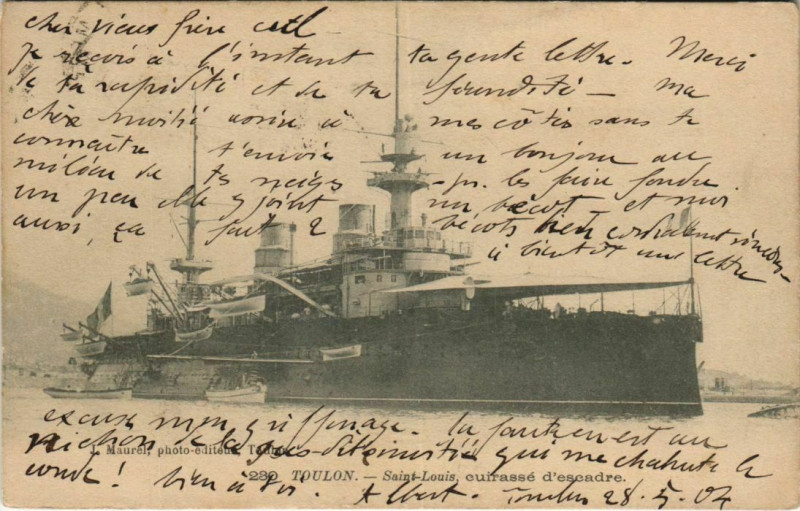 cher vieux frère
je reçois à l'instant ta gente lettre. Merci
de ta rapidité et de ta - ma
chère assise à mes côtés sans te
connaître t'envoie un bonjour au
milieu de tes neiges - pr. les faire fondre.
un peu elle y joint un bécot et moi
aussi, ça fait 2 bécots bien cordialement
à bientôt une lettre
excuse mon griffonage. la faute en est au
nichon de la sus-dite qui me chahute le
coude! bien à toi. Albert. Toulon 28.5.04
J. Maurel, photo-éditeur, Toulon
239 TOULON. — Saint-Louis, cuirassé d'escadre.